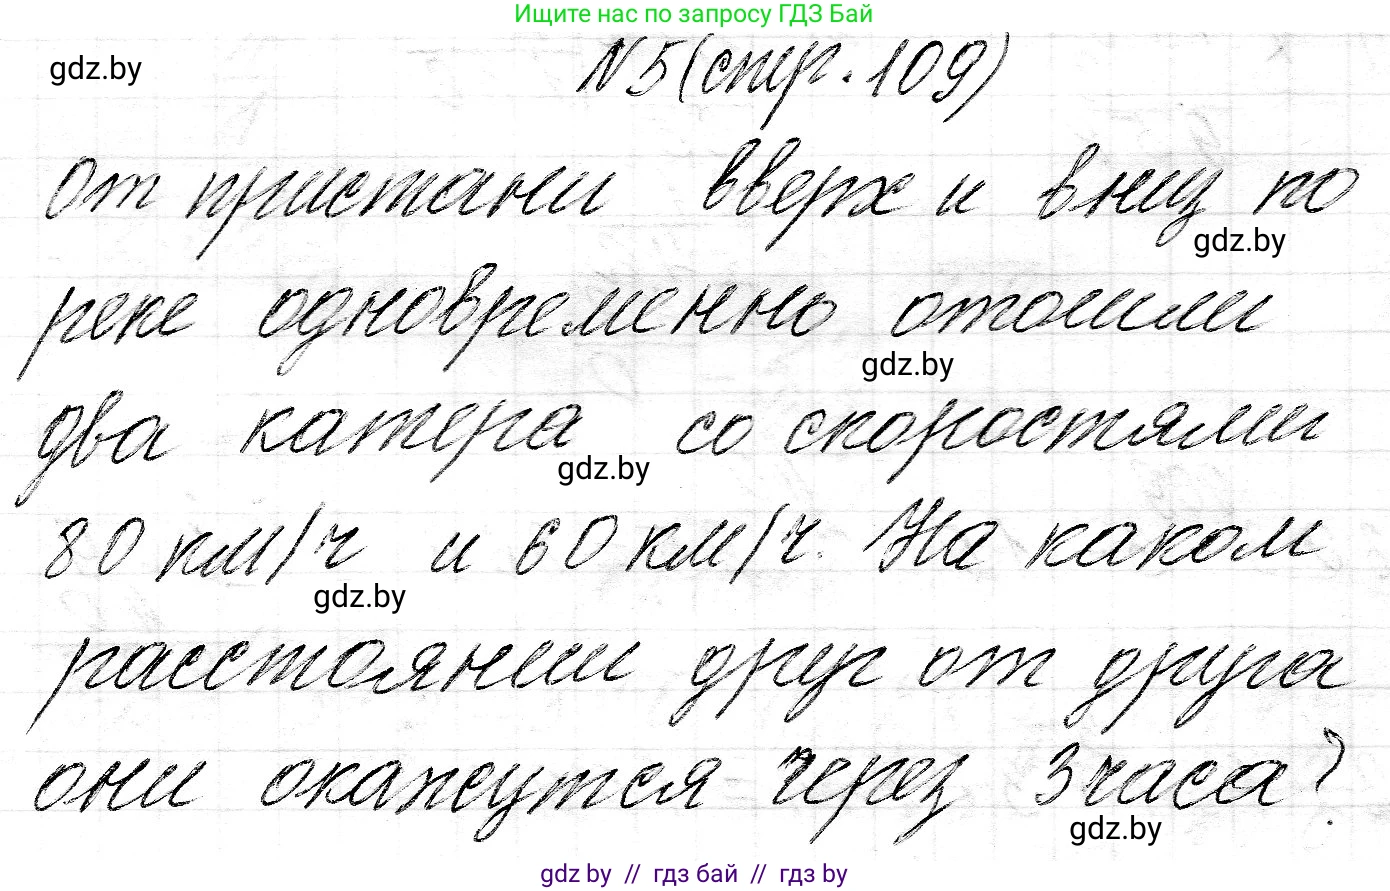 Ищите нас по запросу ГДЗ Бай
N5(стр. 109)
gdz.by
От пристани вверх и вниз по
gdz.by
реке одновременно отошли
gdz.by
два катера со скоростями
gdz.by
80 км/ч и 60 км/ч. На каком
gdz.by
расстоянии друг от друга
они окажутся через 3 часа?
gdz.by
gdz by // гдз бай // гдз by